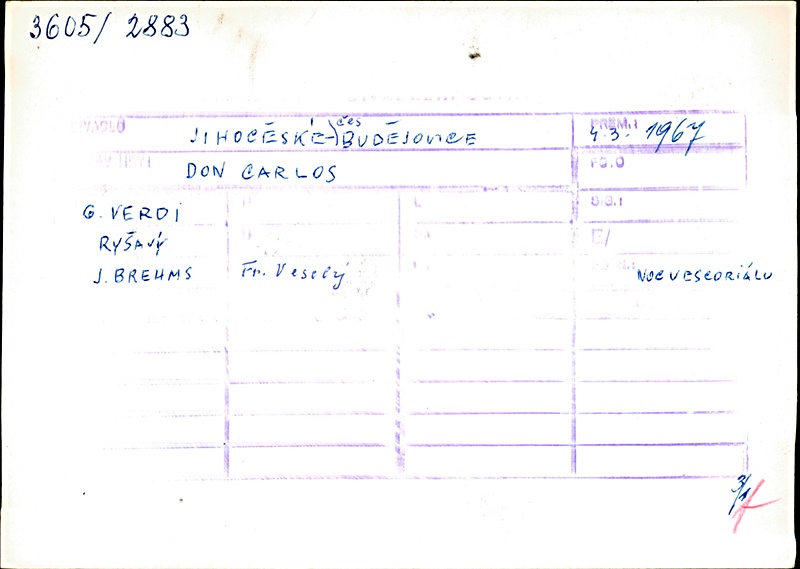 3605/2883
DIVADLO JIHOČESKÉ-) čes BUDĚJOVICE PREM.: 4.3. 1967
DON CARLOS
G. VERDI
RYŠAVÝ E/
J. BREHMS Fr. Veselý NOC V ESCORIÁLU